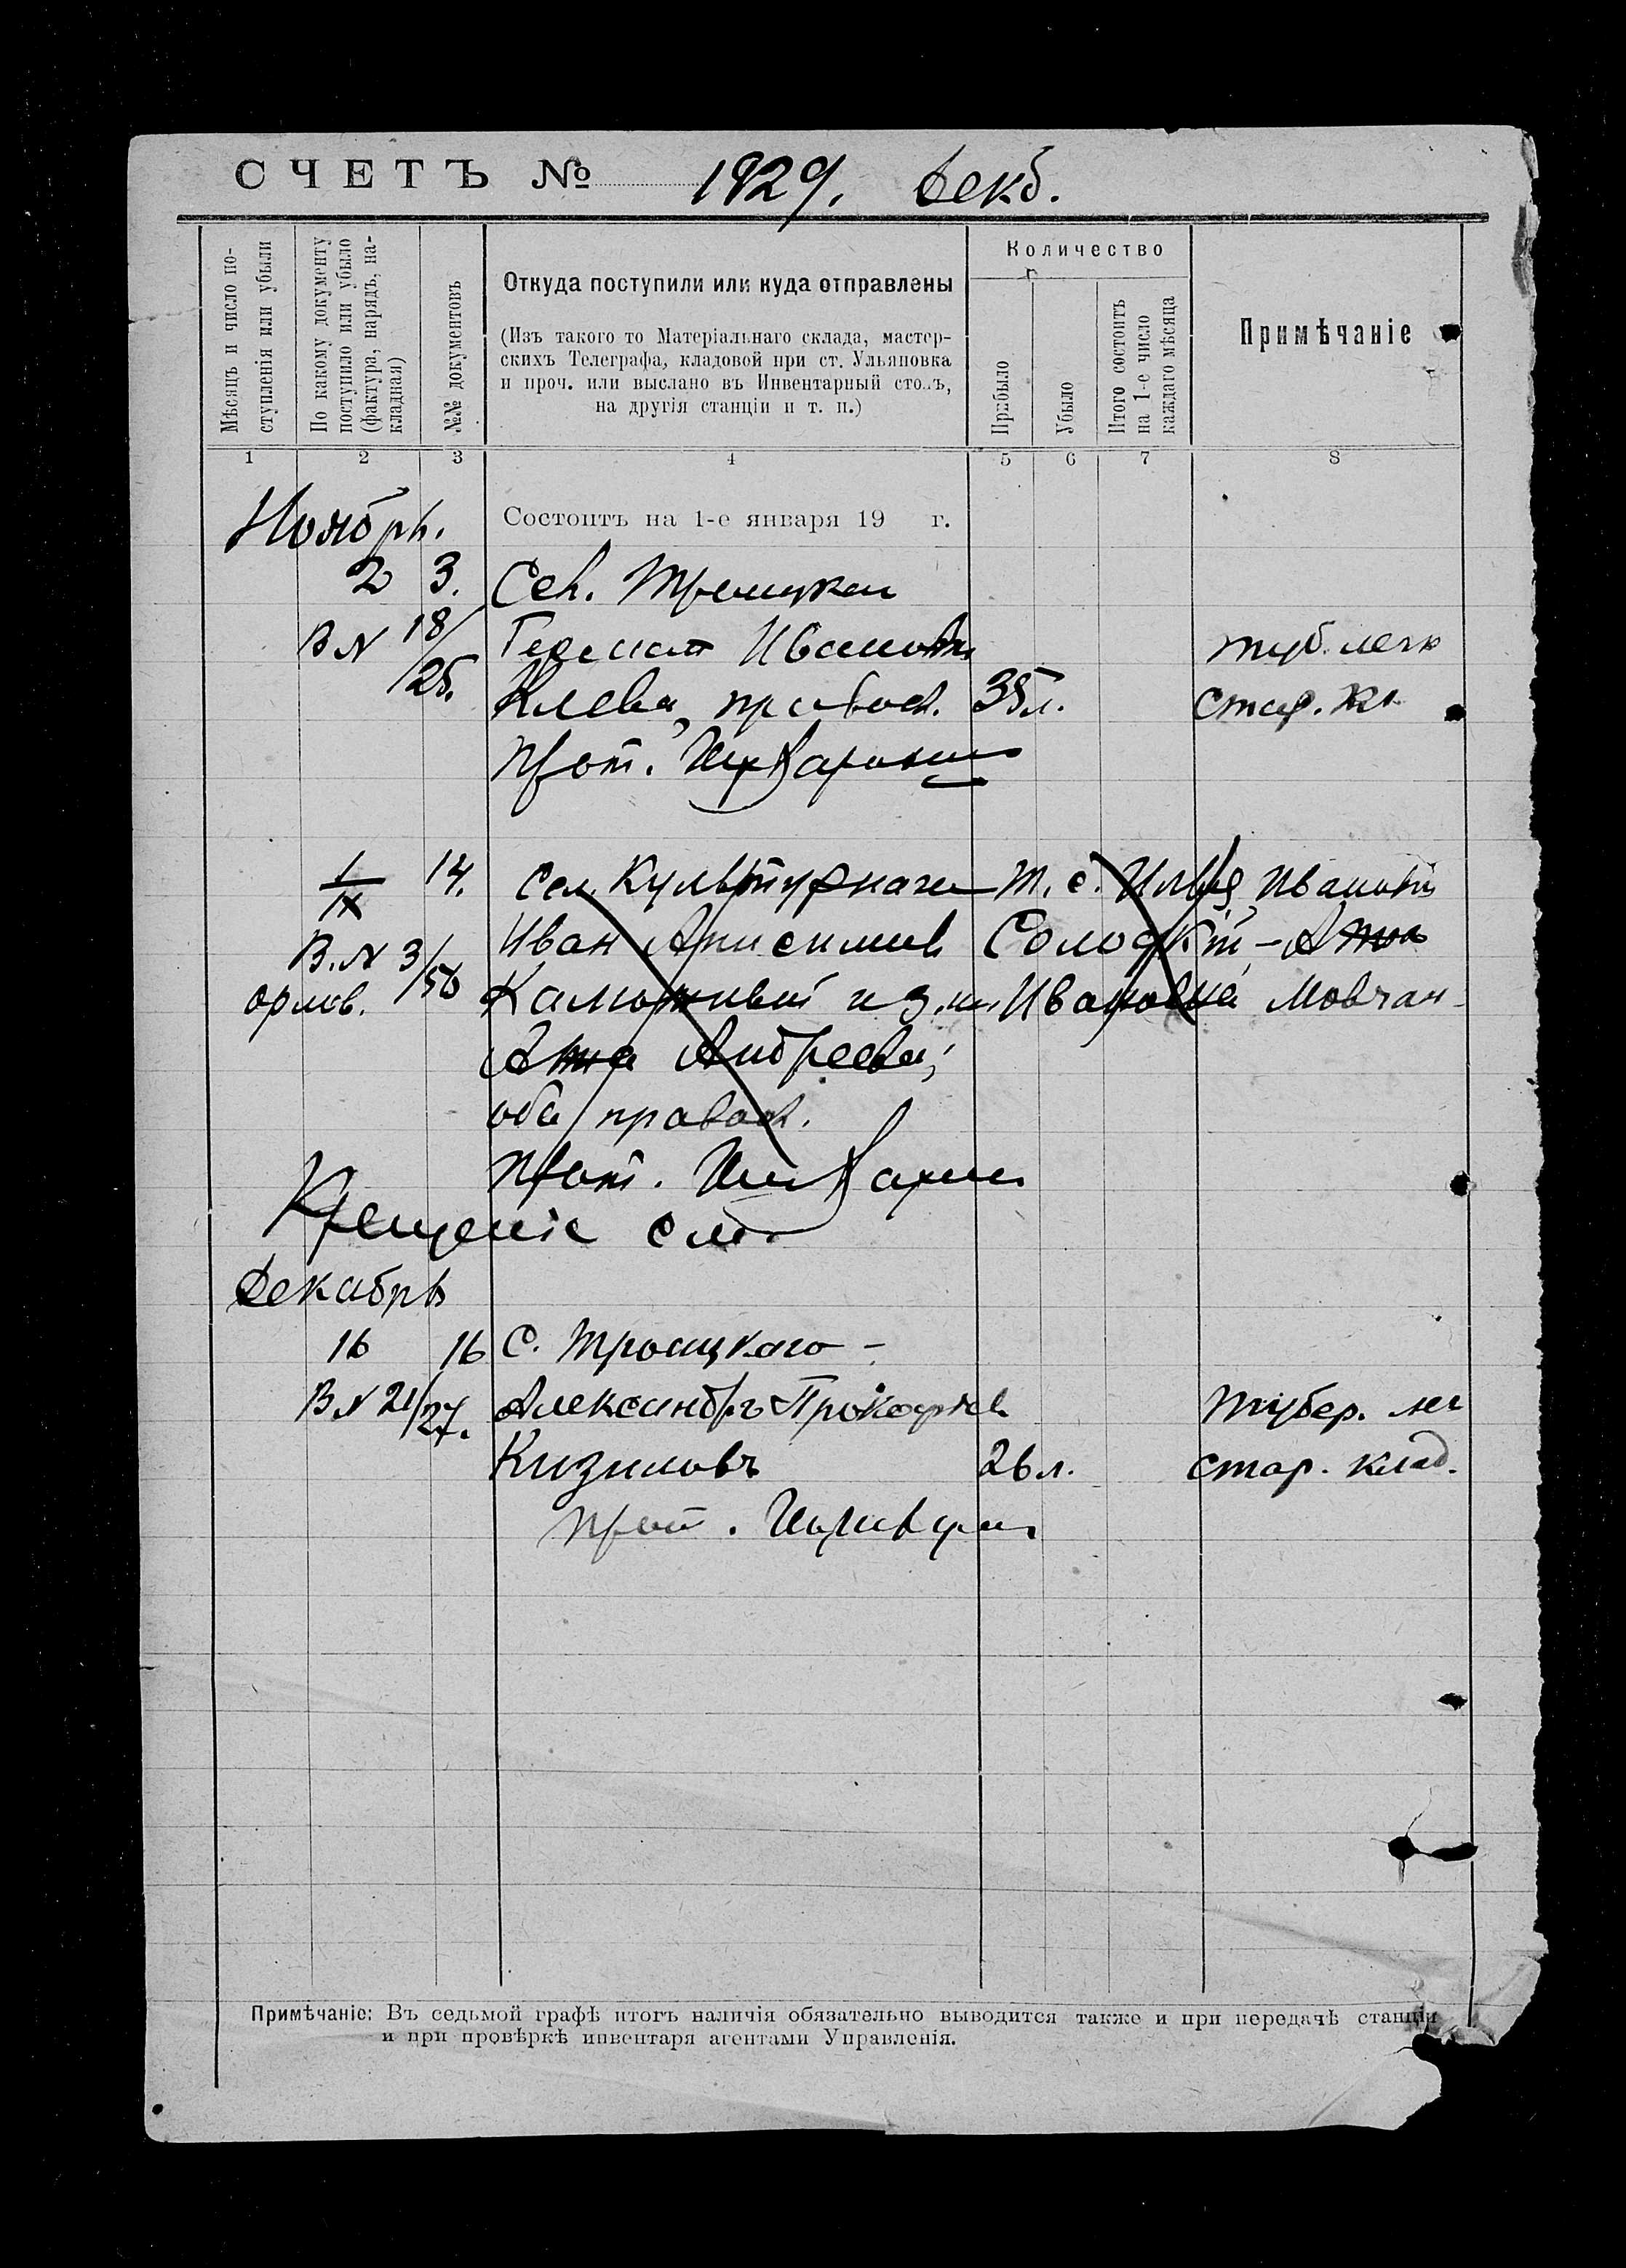 СЧЕТЪ № 1929. Декб.
Мѣсяцъ и число по-
ступленія или убыли
По какому документу
поступило или убыло
(фактура, нарядъ, на-
кладная)
№№ документовъ
Откуда поступили или куда отправлены
(Изъ такого то Матеріальнаго склада, мастер-
скихъ Телеграфа, кладовой при ст. Ульяновка
и проч. или выслано въ Инвентарный столъ,
на другія станціи и т. п.)
Количество
Прибыло
Убыло
Итого состоитъ
на 1-е число
каждаго мѣсяца
Примѣчаніе
1 2 3 4 5 6 7 8
Ноябрь.
Состоитъ на 1-е января 19 г.
2 3. Сел.
В № 18/25. туб. легк
правосл. 35 л. стар. кл
Прот.
1/IX 14. сел. т. с. Илья Иванов
В. № 3/50 Иван Анисимов
орлов. Ивановна Мовчан
Андреева;
оба правосл.
Прот.
Крещеніе см.
Декабрь
16 16 С. Троицкаго -
В № 21/27. Александръ Прокофьев Тубер. лег
Кизиловъ 26 л. стар. клад.
Прот.
Примѣчаніе: Въ седьмой графѣ итогъ наличія обязательно выводится также и при передачѣ станціи
и при провѣркѣ инвентаря агентами Управленія.